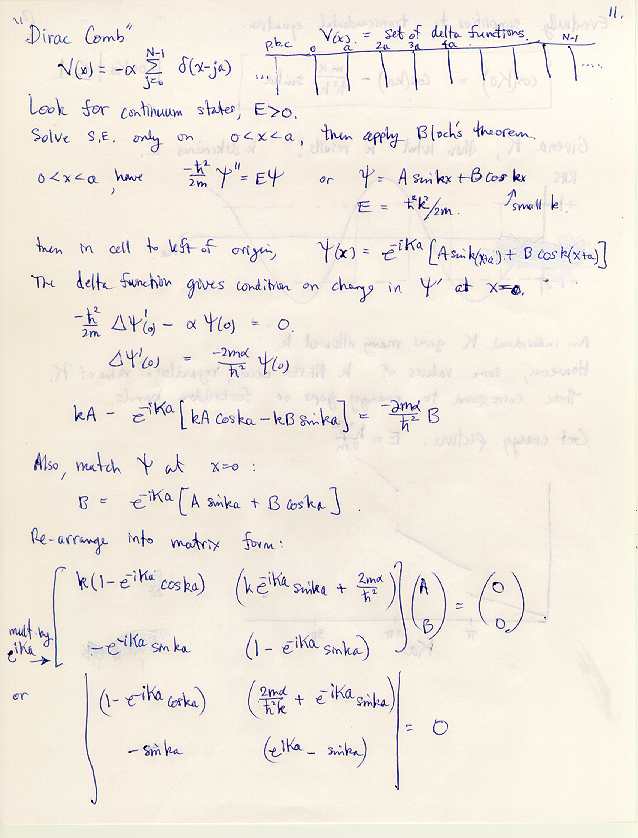 11.
"Dirac Comb"
V(x) = -α Σ_{j=0}^{N-1} δ(x-ja)
V(x) = set of delta functions.
p.b.c 0 a 2a 3a 4a N-1
Look for continuum states, E>0.
Solve S.E. only on 0<x<a, then apply Bloch's theorem.
0<x<a, have -ħ²/2m Ψ'' = EΨ or Ψ = A sin kx + B cos kx
E = ħ²k²/2m. small k.
then in cell to left of origin, Ψ(x) = e^{-iKa} [A sin k(x+a) + B cos k(x+a)]
The delta function gives condition on change in Ψ' at x=0.
-ħ²/2m ΔΨ'(0) - αΨ(0) = 0.
ΔΨ'(0) = -2mα/ħ² Ψ(0)
kA - e^{-iKa} [kA cos ka - kB sin ka] = -2mα/ħ² B
Also, match Ψ at x=0 :
B = e^{-iKa} [A sin ka + B cos ka] .
Re-arrange into matrix form:
[ k(1-e^{-iKa} cos ka) (k e^{-iKa} sin ka + 2mα/ħ²) ] (A) = (0)
mult. by e^{iKa} → [ -e^{-iKa} sin ka (1 - e^{-iKa} sin ka) ] (B) (0)
or | (1-e^{-iKa} cos ka) (2mα/ħ²k + e^{-iKa} sin ka) |
| -sin ka (e^{iKa} - sin ka) | = 0